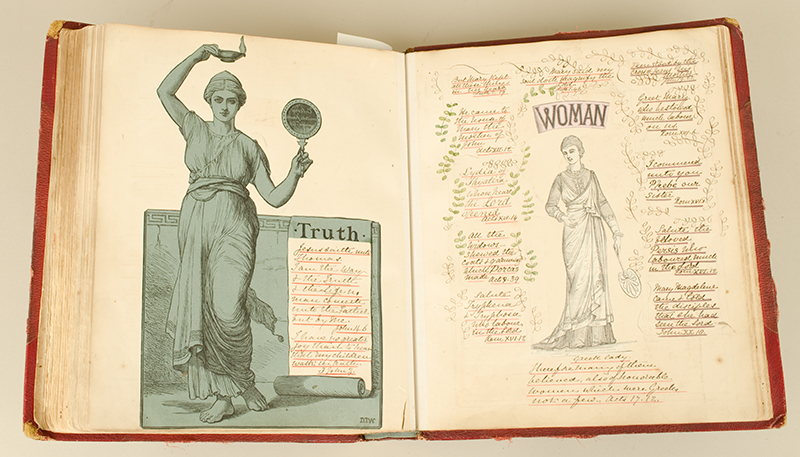 Truth
Jesus saith unto
Thomas
I am the Way
& the Truth
& the Life no
man cometh
unto the Father
but by me.
John 14.6
I have no greater
joy than to hear
that my children
walk in Truth
3 John 4
DTW
But Mary kept
all these things
in her heart
Mary said my
soul doth magnify the
WOMAN
He came to
the house of
Mary the
mother of
John
Acts XII.12
Lydia of
Thyatira
whose heart
the Lord
opened
Acts XVI.14
All the
widows
shewed the
coats & garments
which Dorcas
made Acts 9.39
Salute
Tryphena
& Tryphosa
who labour
in the Lord
Rom. XVI.12
Greet Mary
who bestowed
much labour
on us
Rom XVI.6
I commend
unto you
Phebe our
sister
Rom XVI.1
Salute the
beloved
Persis who
laboured much
in the Lord
Rom XVI.12
Mary Magdalene
came & told
the disciples
that she had
seen the Lord
John XX.18
Greek lady
Therefore many of them
believed also of honourable
women which were Greeks
not a few. Acts 17.12.